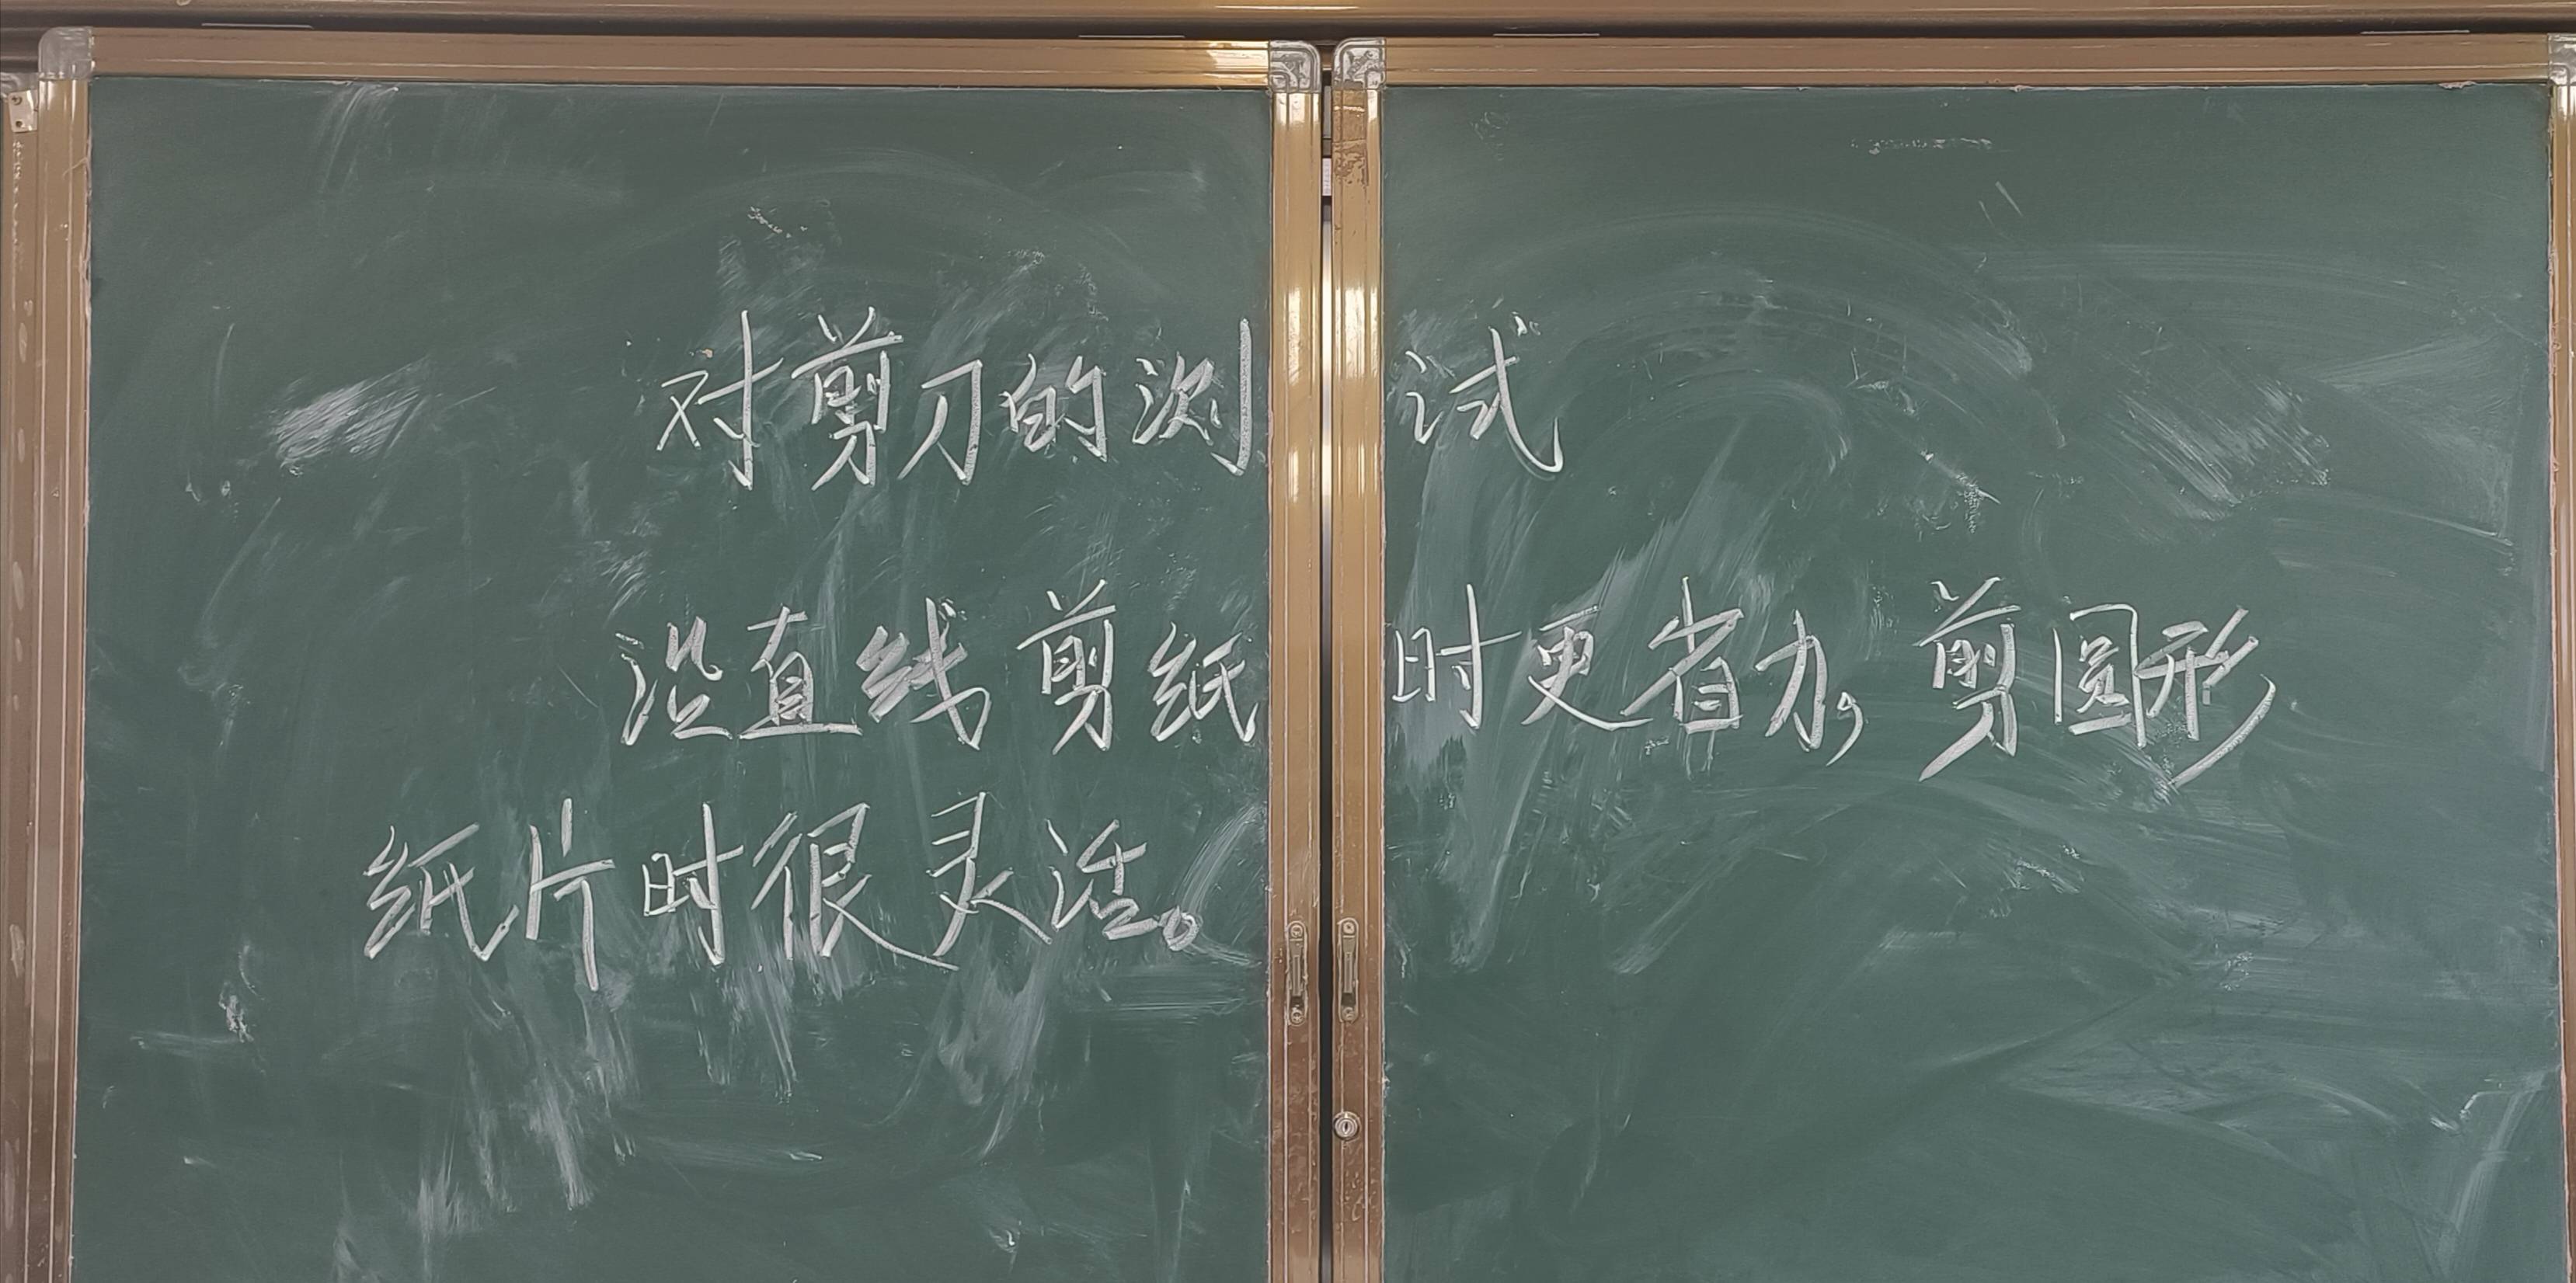 对剪刀的测试
沿直线剪纸时更省力，剪圆形
纸片时很灵活。